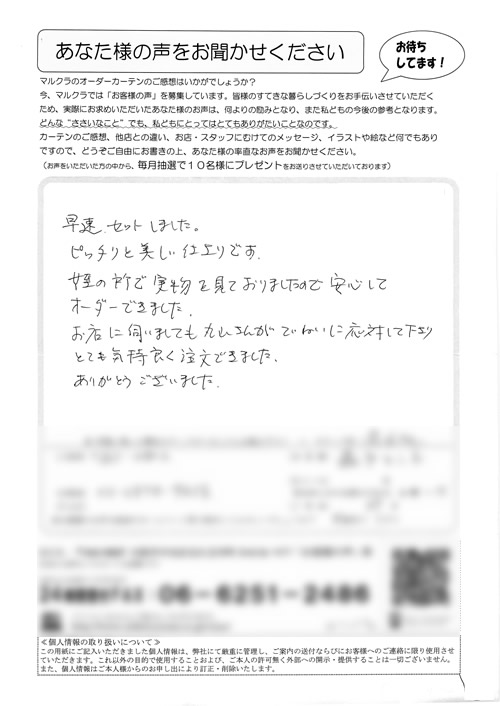 あなた様の声をお聞かせください
お待ち
してます！
マルクラのオーダーカーテンのご感想はいかがでしょうか？
今、マルクラでは「お客様の声」を募集しています。皆様のすてきな暮らしづくりをお手伝いさせていただく
ため、実際にお求めいただいたあなた様のお声は、何よりの励みとなり、また私どもの今後の参考となります。
どんな“ささいなこと”でも、私どもにとってはとてもありがたいことなのです。
カーテンのご感想、他店との違い、お店・スタッフにむけてのメッセージ、イラストや絵など何でもあり
ですので、どうぞご自由にお書きの上、あなた様の率直なお声をお聞かせください。
（お声をいただいた方の中から、毎月抽選で１０名様にプレゼントをお送りさせていただいております）
早速、セットしました。
ピッチリと美しい仕上りです。
姪の所で実物を見ておりましたので安心して
オーダーできました。
お店に伺いましても丸山さんがていねいに応対して下さり
とても気持良く注文できました。
ありがとうございました。
06-6251-2486
≪個人情報の取り扱いについて≫
この用紙にご記入いただきました個人情報は、弊社にて厳重に管理し、ご案内の送付ならびにお客様へのご連絡に限り使用させ
ていただきます。これ以外の目的で使用することおよび、ご本人の許可無く外部への開示・提供することは一切ございません。
また、個人情報はご本人様からのお申し出により訂正・削除いたします。